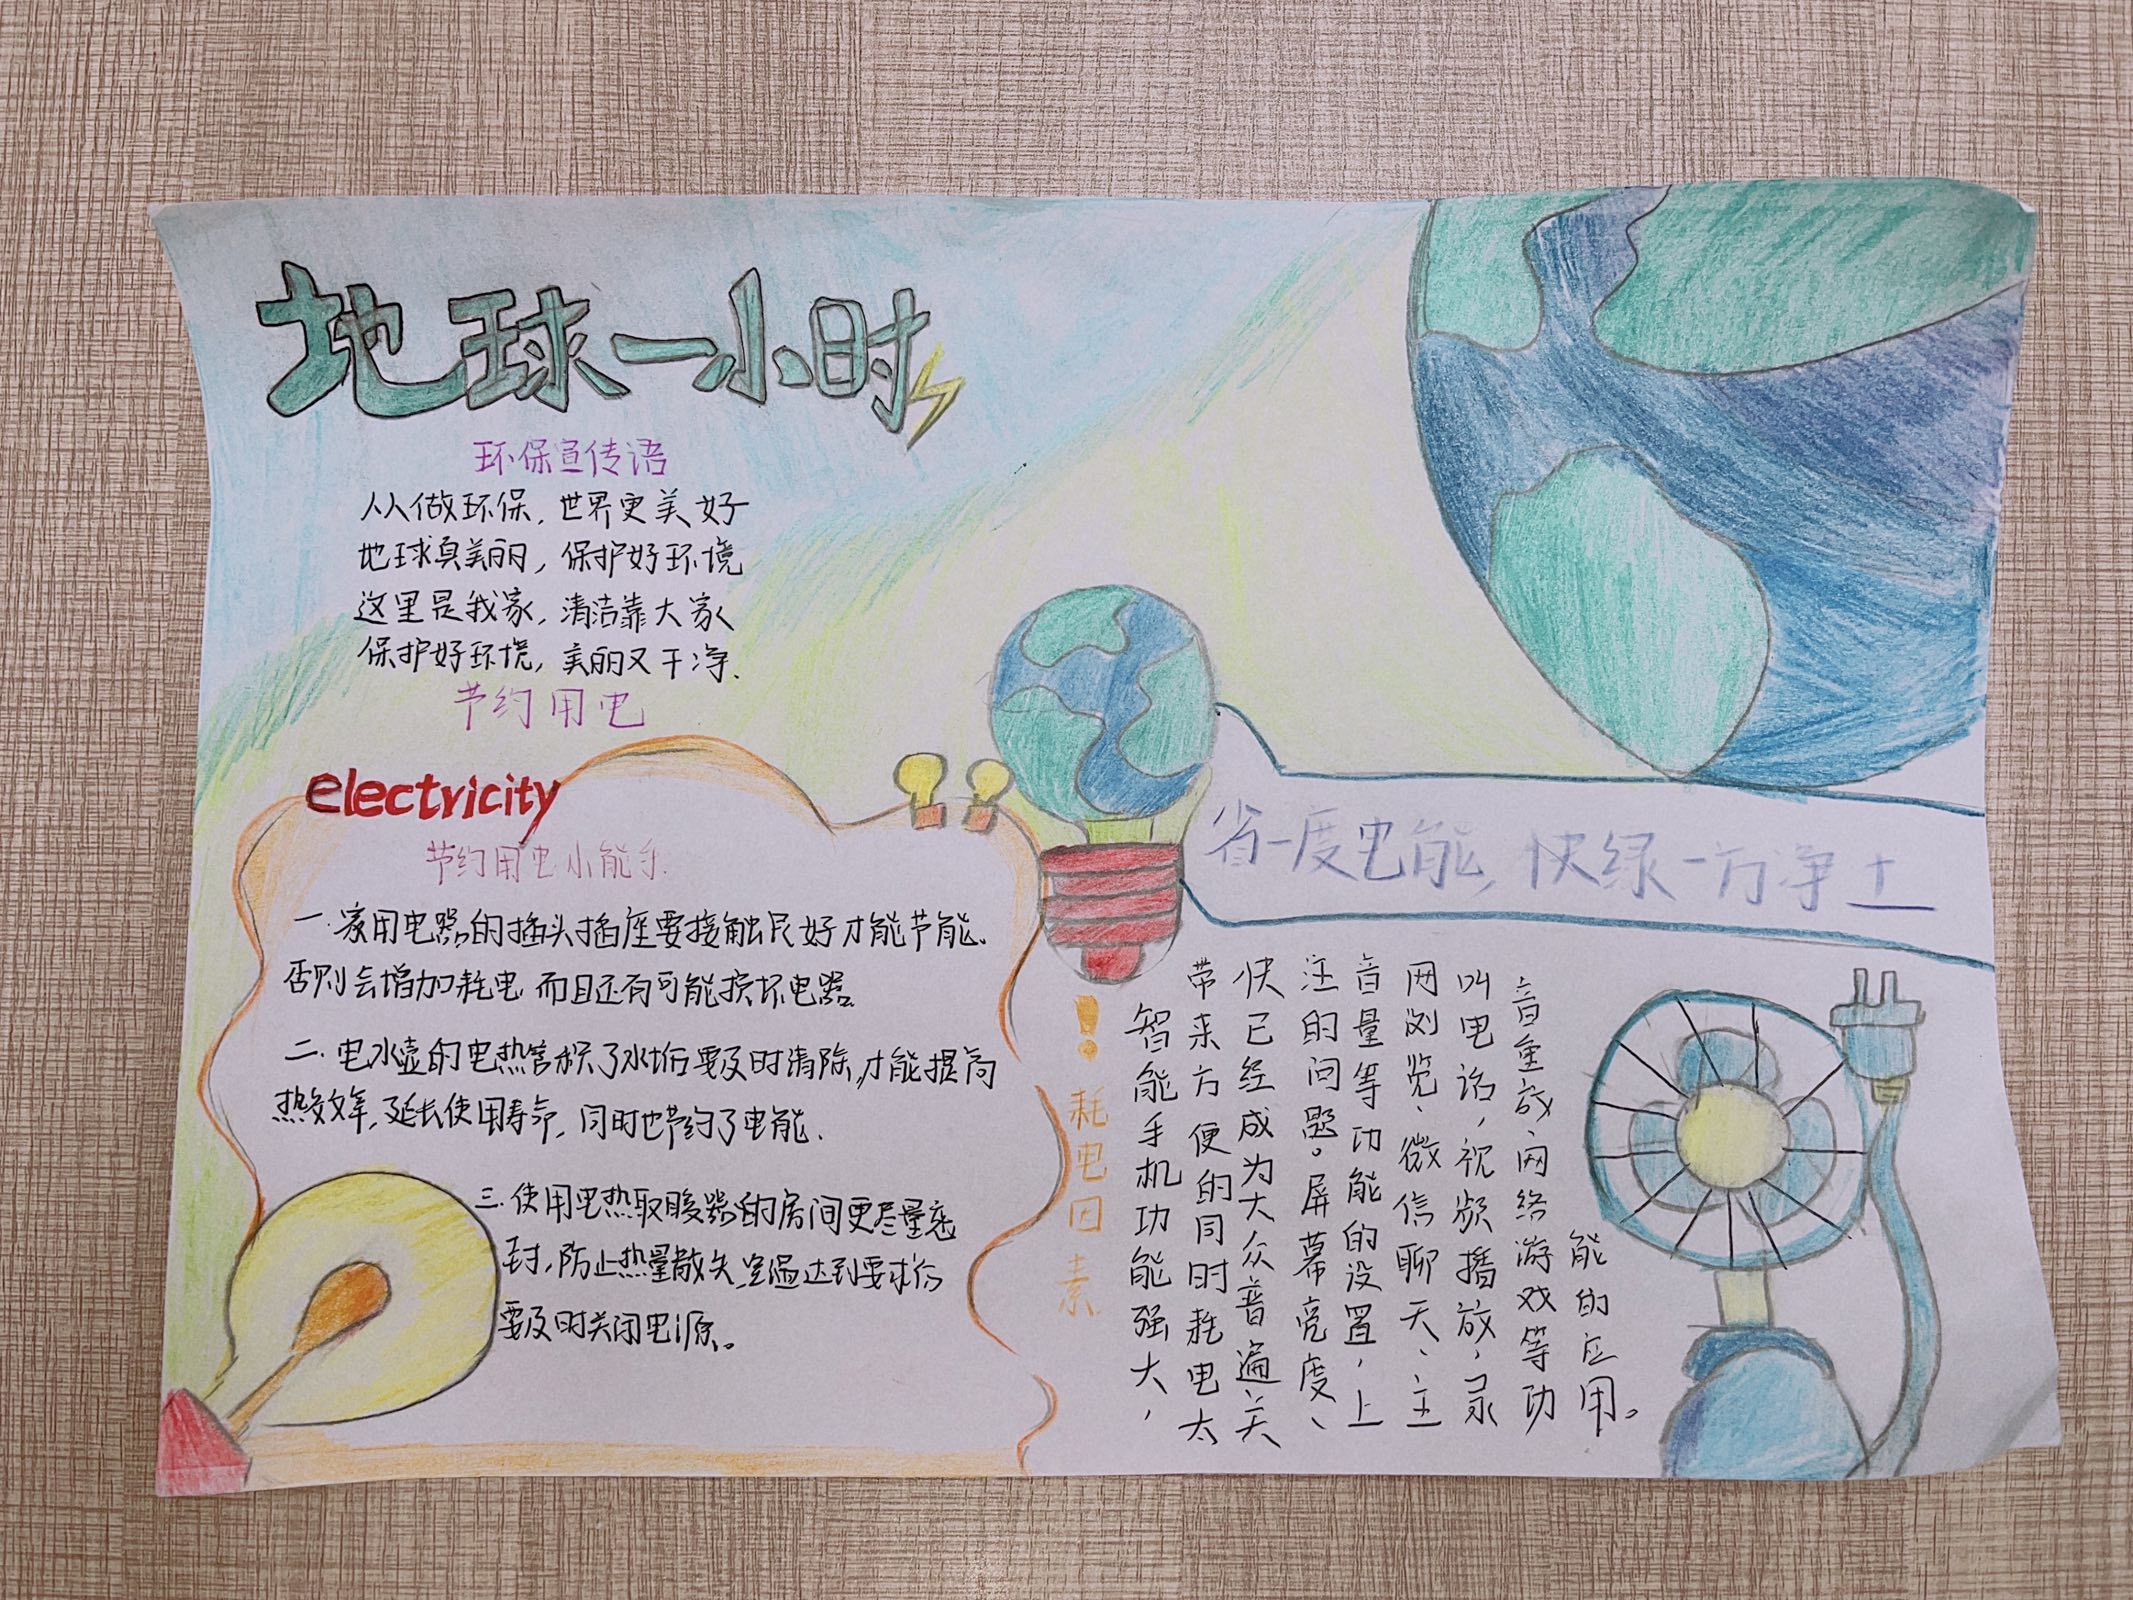 地球一小时
环保宣传语
人人做环保，世界更美好
地球真美丽，保护好环境
这里是我家，清洁靠大家
保护好环境，美丽又干净.
节约用电
electricity
节约用电小能手
一.家用电器的插头插座要接触良好才能节能.
否则会增加耗电 而且还有可能损坏电器.
二.电水壶的电热管积了水垢要及时清除,才能提高
热效率,延长使用寿命,同时也节约了电能.
三.使用电热取暖器的房间更尽量密
封,防止热量散失,室温达到要求后
要及时关闭电源。
省一度电能,快绿一方净土
!耗电因素
智能手机功能强大，
带来方便的同时耗电太
快已经成为大众普遍关
注的问题。屏幕亮度、
音量等功能的设置，上
网浏览、微信聊天、主
叫电话，视频播放，录
音重放、网络游戏等功
能的应用。